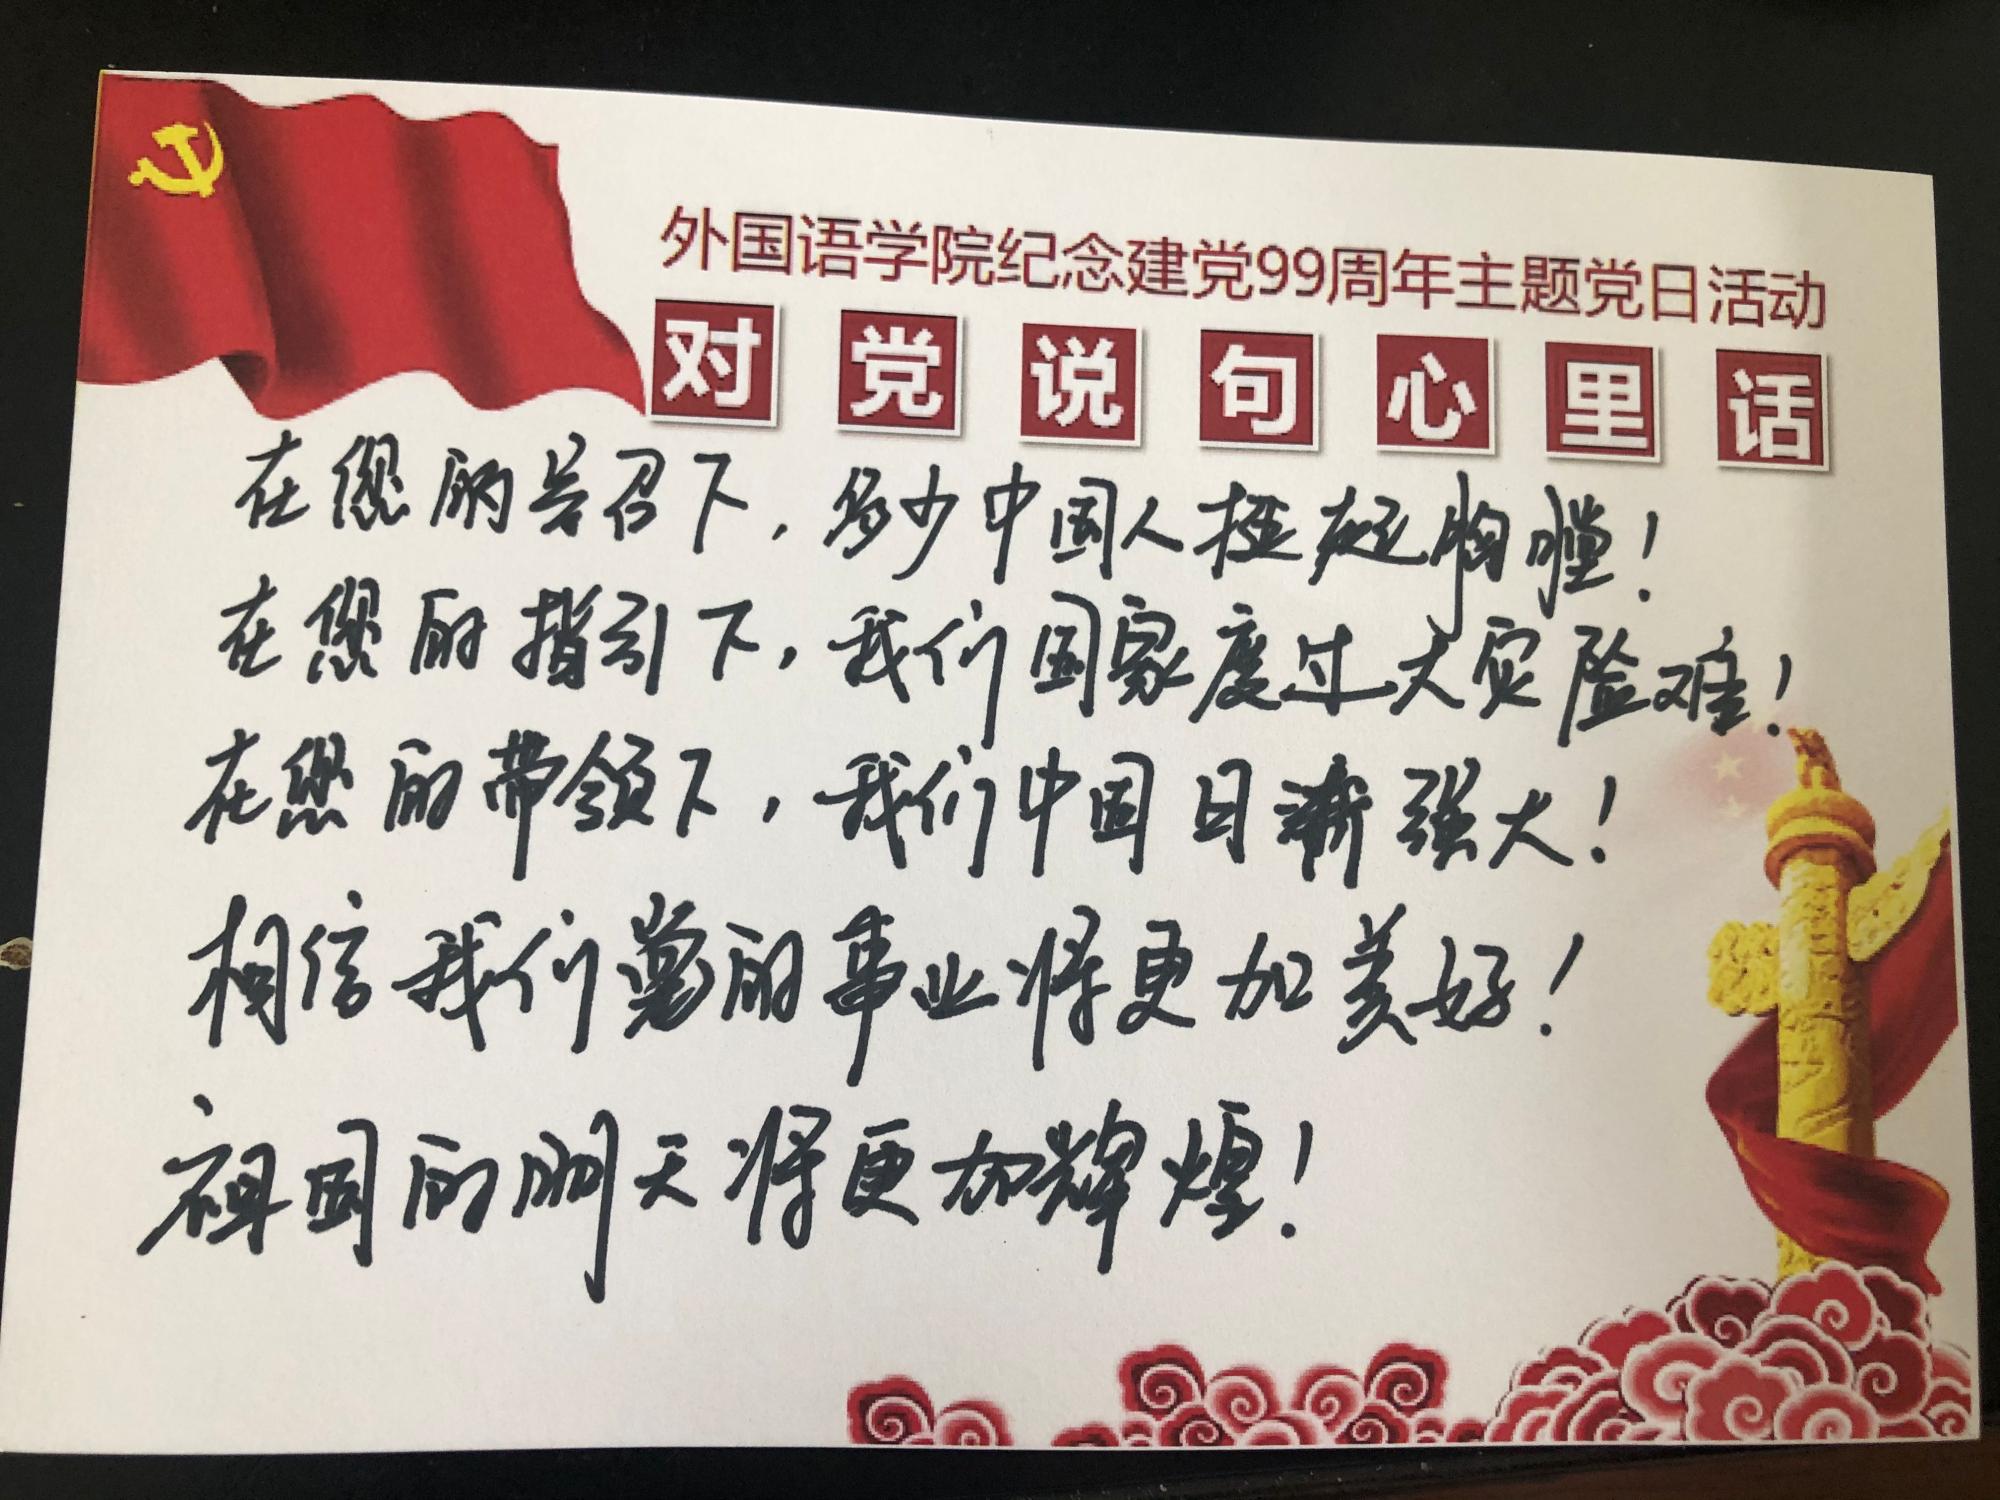 外国语学院纪念建党99周年主题党日活动
对党说句心里话
在您的号召下,多少中国人挺起胸膛!
在您的指引下,我们国家度过大灾险难!
在您的带领下,我们中国日渐强大!
相信我们党的事业将更加美好!
祖国的明天将更加辉煌!